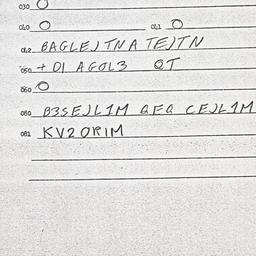 030 O
040 O 041 O
042 BAGLEJTNA TEJTN
050 + DI AGOL3 QT
060 O
080 B3SEJL1M QFQ CEJL1M
081 KV20RIM